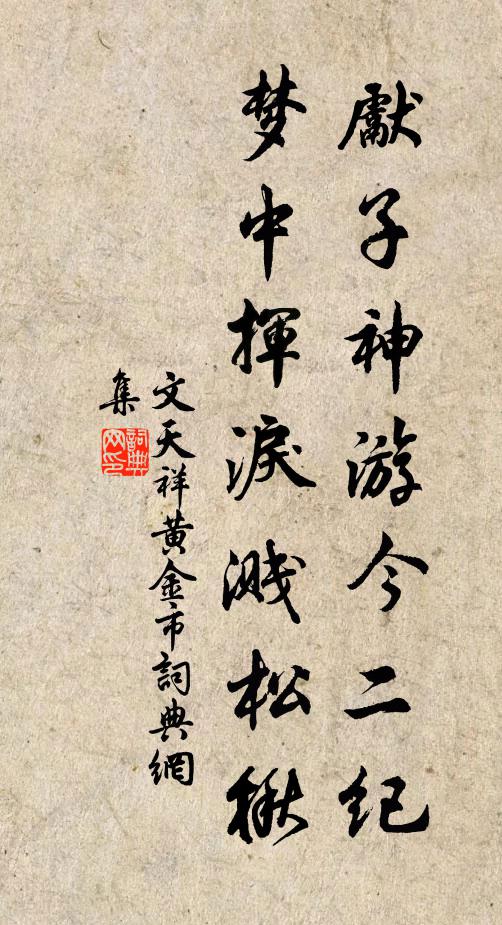 獻子神游今二紀
梦中揮淚溅松楸
文天祥黄金市詞典網
集
詞典
网印